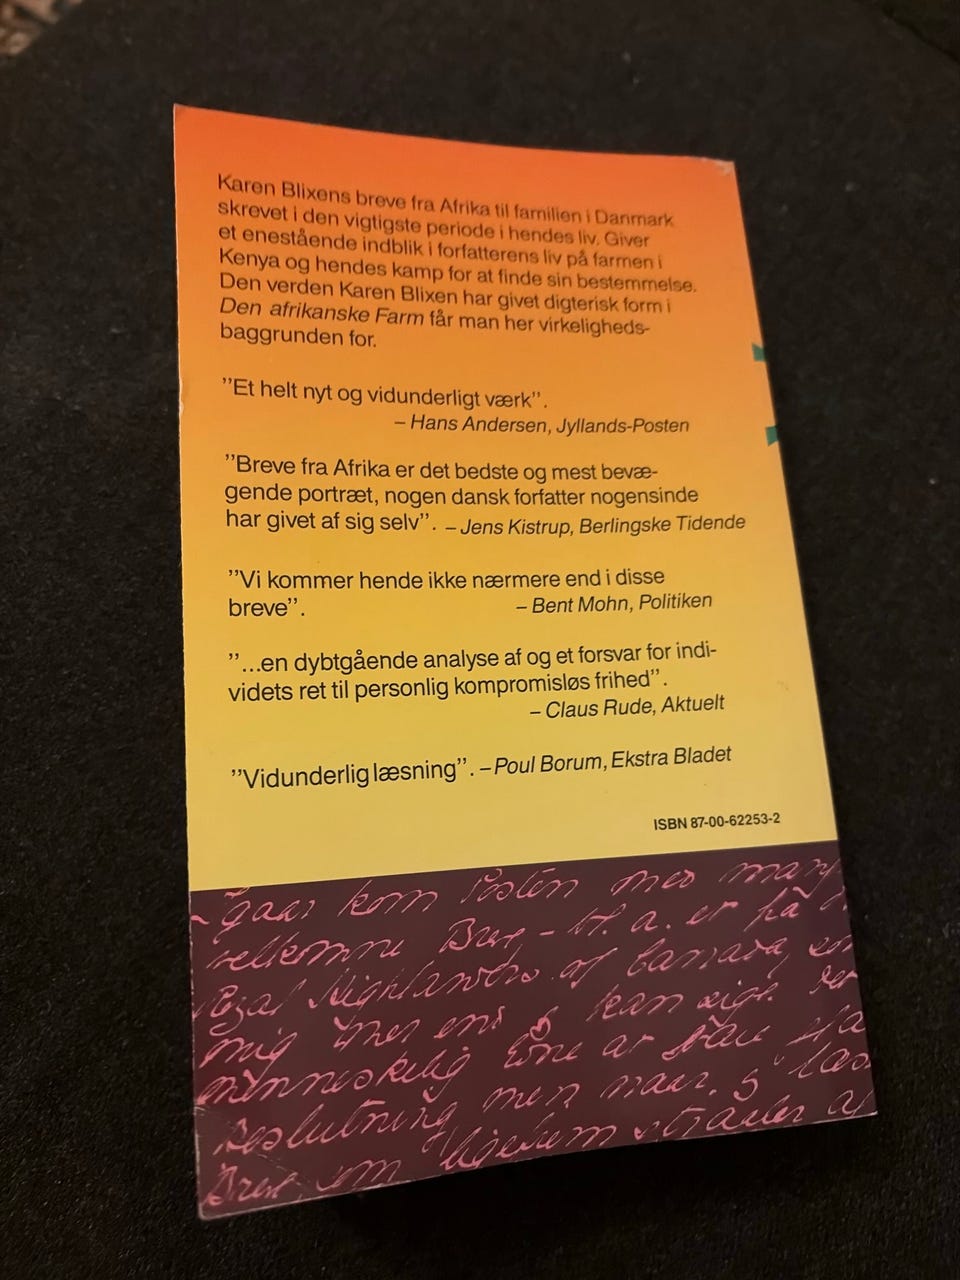 Karen Blixens breve fra Afrika til familien i Danmark
skrevet i den vigtigste periode i hendes liv. Giver
et enestående indblik i forfatterens liv på farmen i
Kenya og hendes kamp for at finde sin bestemmelse.
Den verden Karen Blixen har givet digterisk form i
Den afrikanske Farm får man her virkeligheds-
baggrunden for.
"Et helt nyt og vidunderligt værk".
– Hans Andersen, Jyllands-Posten
"Breve fra Afrika er det bedste og mest bevæ-
gende portræt, nogen dansk forfatter nogensinde
har givet af sig selv". – Jens Kistrup, Berlingske Tidende
"Vi kommer hende ikke nærmere end i disse
breve". – Bent Mohn, Politiken
"...en dybtgående analyse af og et forsvar for indi-
videts ret til personlig kompromisløs frihed".
– Claus Rude, Aktuelt
"Vidunderlig læsning". – Poul Borum, Ekstra Bladet
ISBN 87-00-62253-2
gaar kom Posten med
velkomne Brev, – bl. a. er fra
Highlanders of Canada,
mig mer end kan sige.
menneskelig Evne at
Beslutning men naar
Brev som ligesom straaler